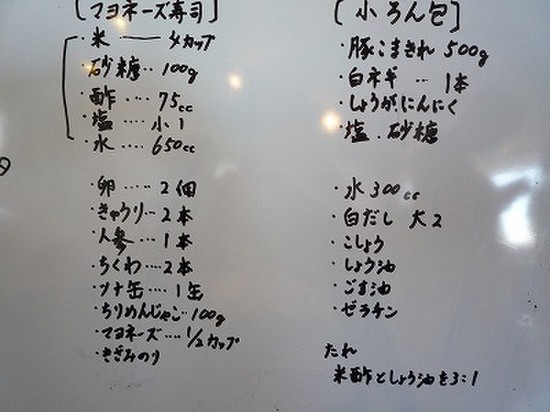 [マヨネーズ寿司]
・米 ―― 4カップ
・砂糖‥100g
・酢‥‥75cc
・塩‥‥小1
・水‥‥650cc
・卵‥‥2個
・きゅうり‥2本
・人参‥‥1本
・ちくわ‥‥2本
・ツナ缶‥‥1缶
・ちりめんじゃこ‥100g
・マヨネーズ‥‥1/2カップ
・きざみのり
[小ろん包]
・豚こまきれ 500g
・白ネギ ‥ 1本
・しょうが、にんにく
・塩、砂糖
・水300cc
・白だし 大2
・こしょう
・しょう油
・ごま油
・ゼラチン
たれ
米酢としょう油を3:1